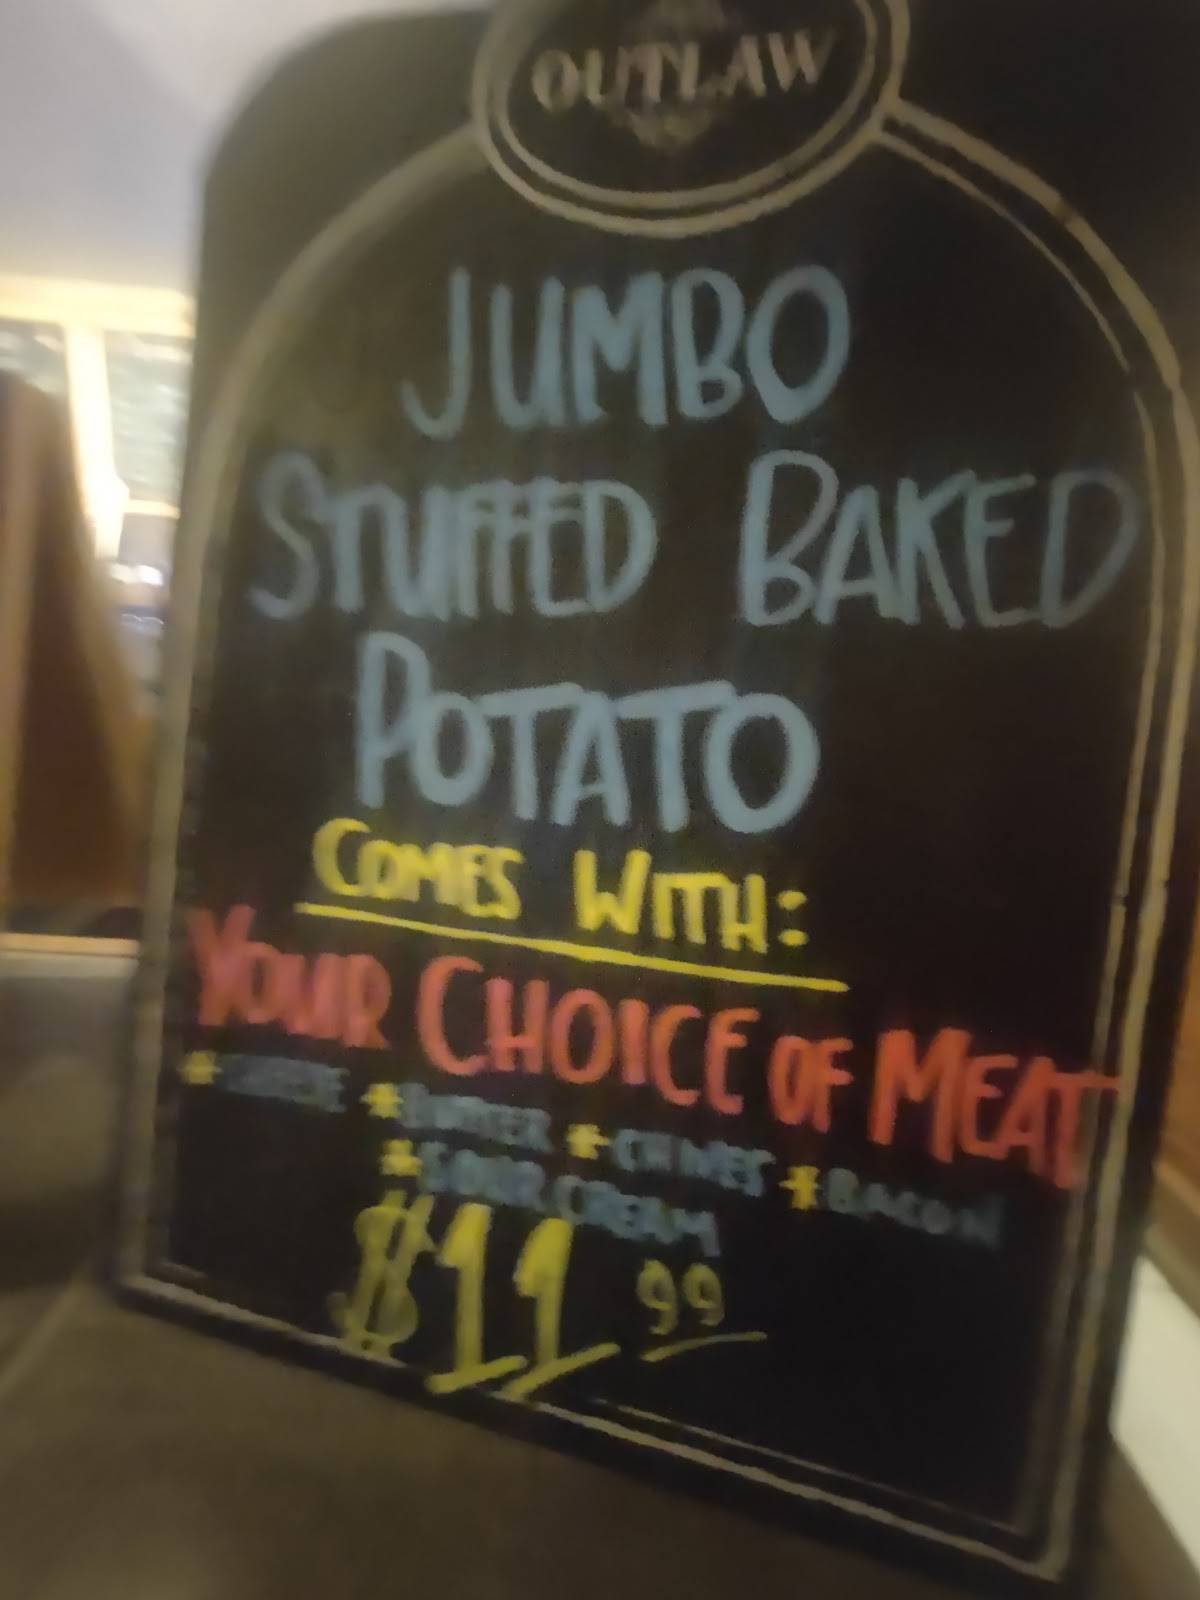 OUTLAW
JUMBO
STUFFED BAKED
POTATO
COMES WITH:
YOUR CHOICE OF MEAT
*CHEESE *BUTTER *CHIVES *BACON
*SOUR CREAM
$11 99